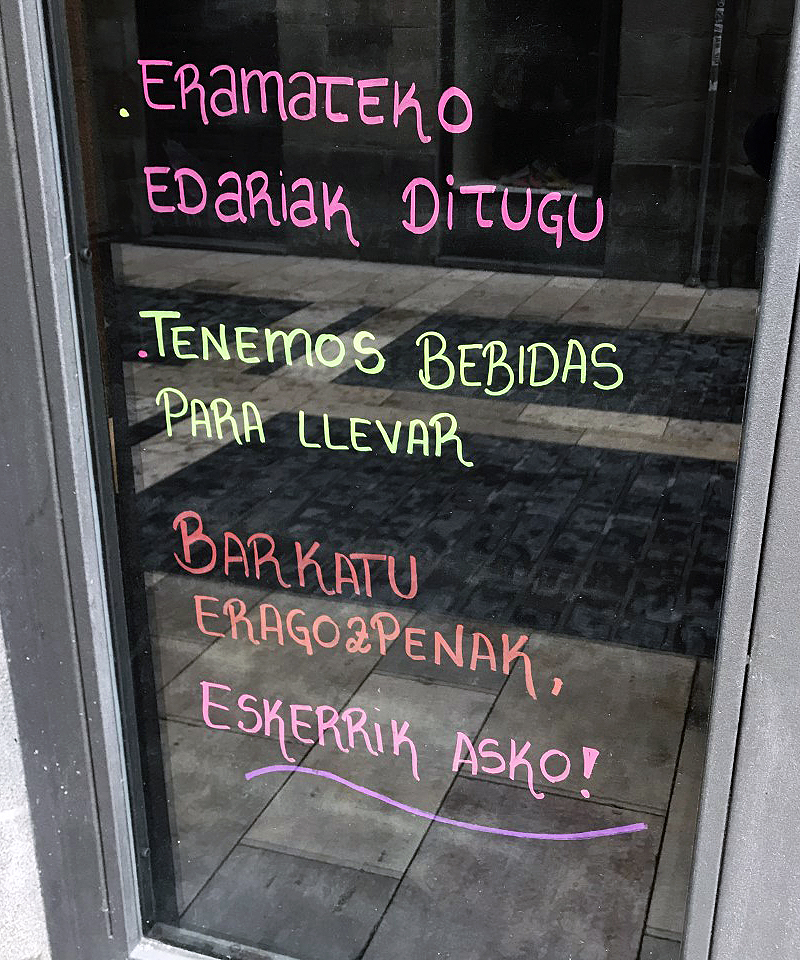 . ERamaTEKO
EDaRiaK DiTUGU
. TENEMOS BEBIDAS
PARA LLEVAR
BARKATU
ERAGOZPENAK,
ESKERRiK ASKO!